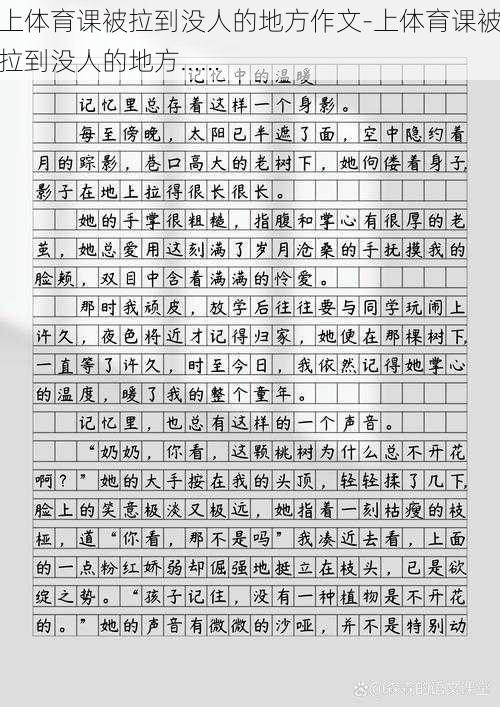 上体育课被拉到没人的地方作文-上体育课被
拉到没人的地方......
记忆中的温暖
记忆里总存着这样一个身影。
每至傍晚，太阳已半遮了面，空中隐约着
月的踪影，巷口高大的老树下，她佝偻着身子，
影子在地上拉得很长很长。
她的手掌很粗糙，指腹和掌心有很厚的老
茧，她总爱用这刻满了岁月沧桑的手抚摸我的
脸颊，双目中含着满满的怜爱。
那时我顽皮，放学后往往要与同学玩闹上
许久，夜色将近才记得归家，她便在那棵树下，
一直等了许久，时至今日，我依然记得她掌心
的温度，暖了我的整个童年。
记忆里，也总有这样的一个声音。
“奶奶，你看，这颗桃树为什么总不开花
啊？”她的大手按在我的头顶，轻轻揉了几下，
脸上的笑意极淡又极远，她指着一刻枯瘦的枝
桠，道“你看，那不是吗”我凑近去看，上面
的一点粉红娇弱却倔强地挺立在枝头，已是欲
绽之势。“孩子记住，没有一种植物是不开花
的。”她的声音有微微的沙哑，并不是特别动
@森森的语文课堂